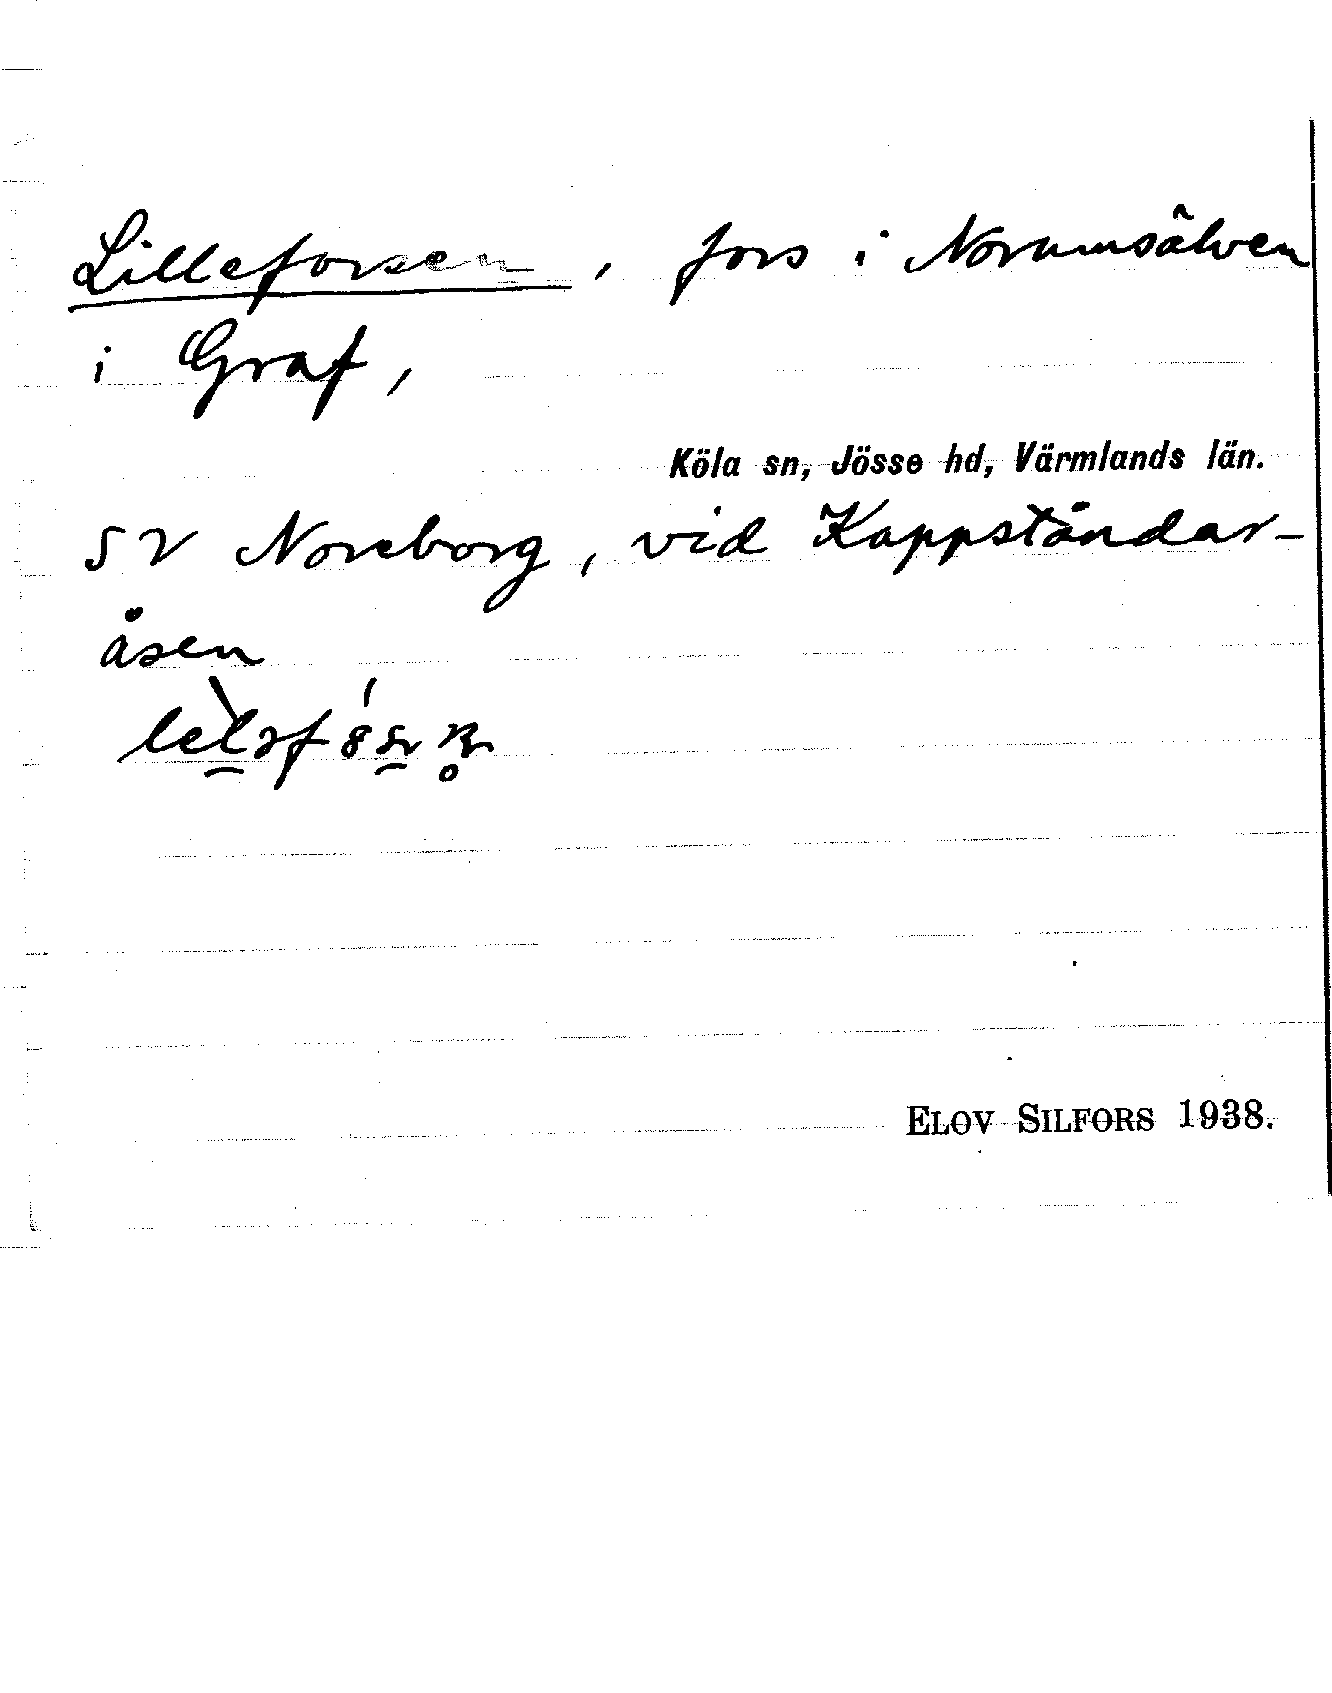 Lilleforsen, fors i Norumsälven
i Graf,
Köla sn, Jösse hd, Värmlands län.
SV Noreborg, vid Kappståndar-
åsen
ELOV SILFORS 1938.